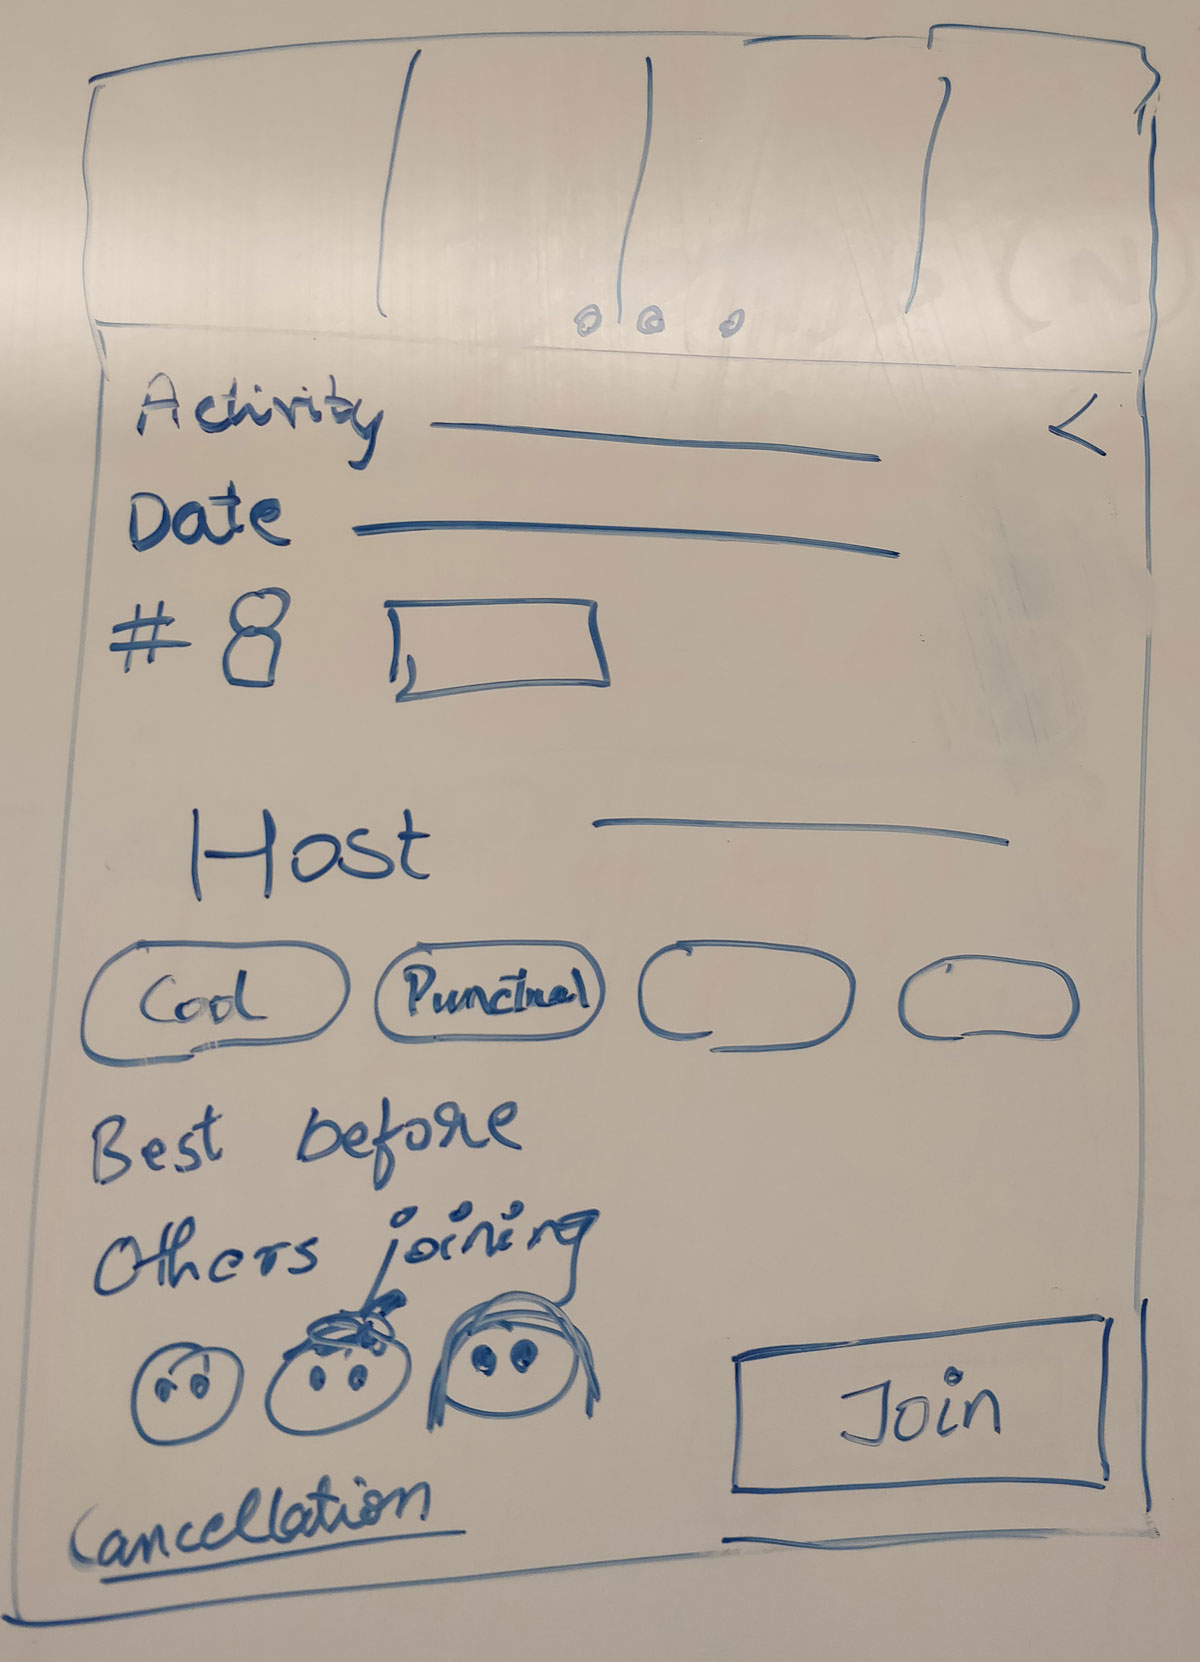 Activity
Date
# 8
Host
Cool Punctual
Best before
Others joining
Join
Cancellation